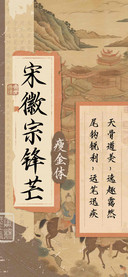 宋徽宗锋芒
瘦金体
天骨遒美；逸趣霭然
尾钩锐利；运笔迅疾